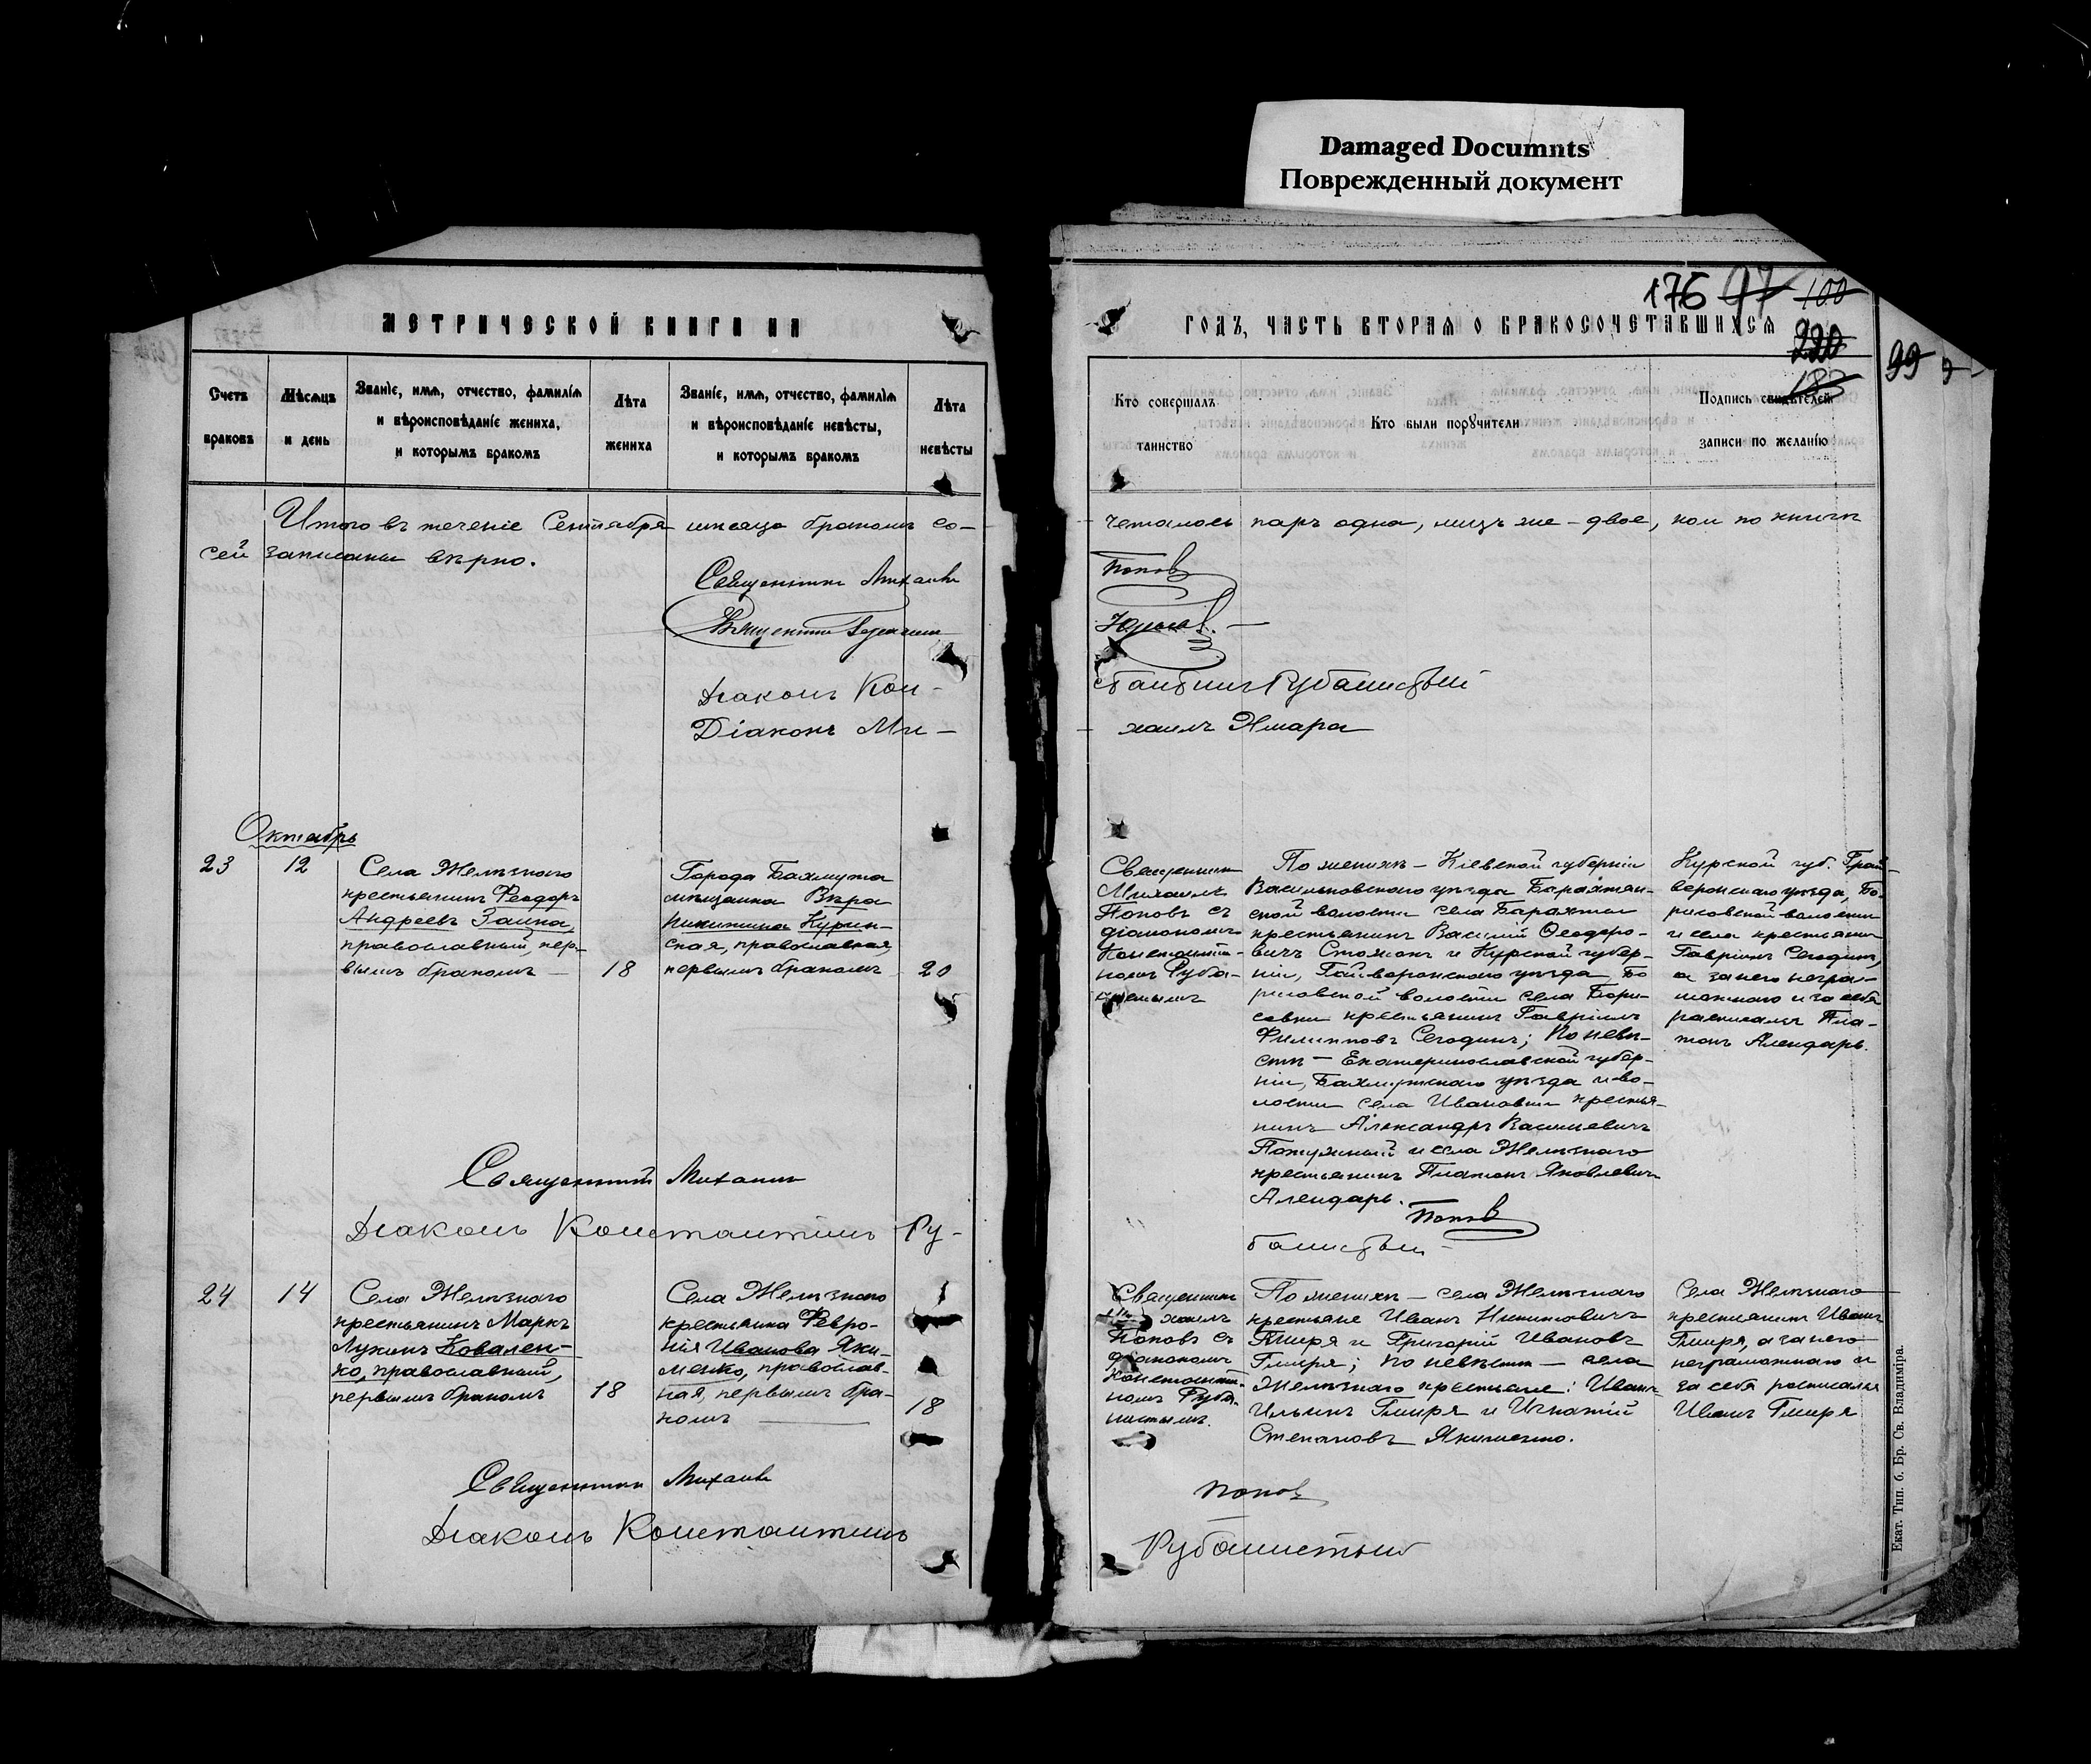 Damaged Documnts
Поврежденный документ
176 97 100
220
183
99
МЕТРИЧЕСКОЙ КНИГИ НА
ГОДЪ, ЧАСТЬ ВТОРАЯ О БРАКОСОЧЕТАВШИХСЯ
Счетъ браковъ
Мѣсяцъ и день
Званіе, имя, отчество, фамилія
и вѣроисповѣданіе жениха,
и которымъ бракомъ
Лѣта жениха
Званіе, имя, отчество, фамилія
и вѣроисповѣданіе невѣсты,
и которымъ бракомъ
Лѣта невѣсты
Кто совершалъ
таинство
Кто были поручители
Подпись свидѣтелей
записи по желанію
Итого въ теченіе Сентября мѣсяца бракомъ со-
четалось паръ одна, лицъ же – двое, кои по книгѣ
сей записаны вѣрно.
Священникъ Михаилъ
Поповъ
Священникъ
Діаконъ Кон-
стантинъ Рубанистый
Діаконъ Ми-
хаилъ Жмара
Октябрь
23
12
Села Желѣзнаго
крестьянинъ Феодоръ
Андреевъ Заика,
православный, пер-
вымъ бракомъ —
18
Города Бахмута
мѣщанка Вѣра
Никитина Курин-
ская, православная,
первымъ бракомъ
20
Священник
Михаилъ
Поповъ съ
діакономъ
Константи-
номъ Руба-
нистымъ
По женихѣ – Кіевской губерніи
Васильковскаго уѣзда Барахтян-
ской волости села Барахты
крестьянинъ Василій Ѳеодоро-
вичъ Стожокъ и Курской губер-
ніи, Гайворонскаго уѣзда Бо
рисовской волости села Бори-
совки крестьянинъ Гавріилъ
Филипповъ Сегодинъ; По невѣ-
стѣ – Екатеринославской губер-
ніи, Бахмутскаго уѣзда и во-
лости села Ивановки крестья-
нинъ Александръ Васильевичъ
и села Желѣзнаго
крестьянинъ Платонъ Яковлевичъ
Алендарь.
Курской губ. Грай-
воронскаго уѣзда, Бо-
рисовской волости
и села крестьянин
Гавріилъ Сегодинъ,
а за него негра-
мотнаго и за себя
расписался Пла-
тонъ Алендарь.
Священникъ Михаилъ
Поповъ
Діаконъ Константинъ Ру-
банистый
24
14
Села Желѣзнаго
крестьянинъ Маркъ
Лукинъ Ковален-
ко, православный,
первымъ бракомъ
18
Села Желѣзнаго
крестьянка Февро-
нія Иванова Яки-
менко, православ-
ная, первымъ бра-
комъ —
18
Священник
Михаилъ
Поповъ съ
діакономъ
Константи-
номъ Руба-
нистымъ.
По женихѣ – села Желѣзнаго
крестьяне Иванъ Никитовичъ
Гмиря и Григорій Ивановъ
Гмиря; по невѣстѣ – села
Желѣзнаго крестьяне: Иванъ
Ильинъ Гмиря и Игнатій
Степановъ Якименко.
Села Желѣзнаго
крестьянинъ Иванъ
Гмиря, а за него
неграмотнаго и
за себя росписался
Иванъ Гмиря
Священникъ Михаилъ
Поповъ
Діаконъ Константинъ
Рубанистый
Екат. Тип. б. Бр. Св. Владиміра.